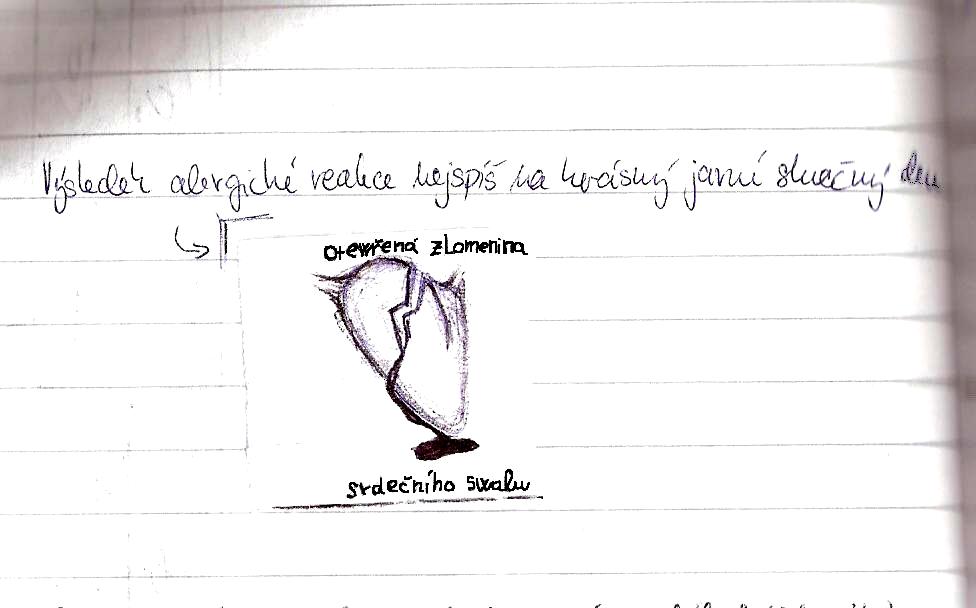 Výsledek alergické reakce nejspíš na krásný jarní slunečný den
otevřená zlomenina
srdečního svalu